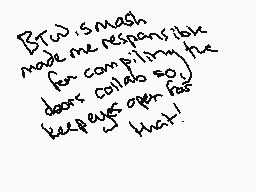 BTW, smash
made me responsible
for compiling the
doors collab so,
keep eyes open for
that!